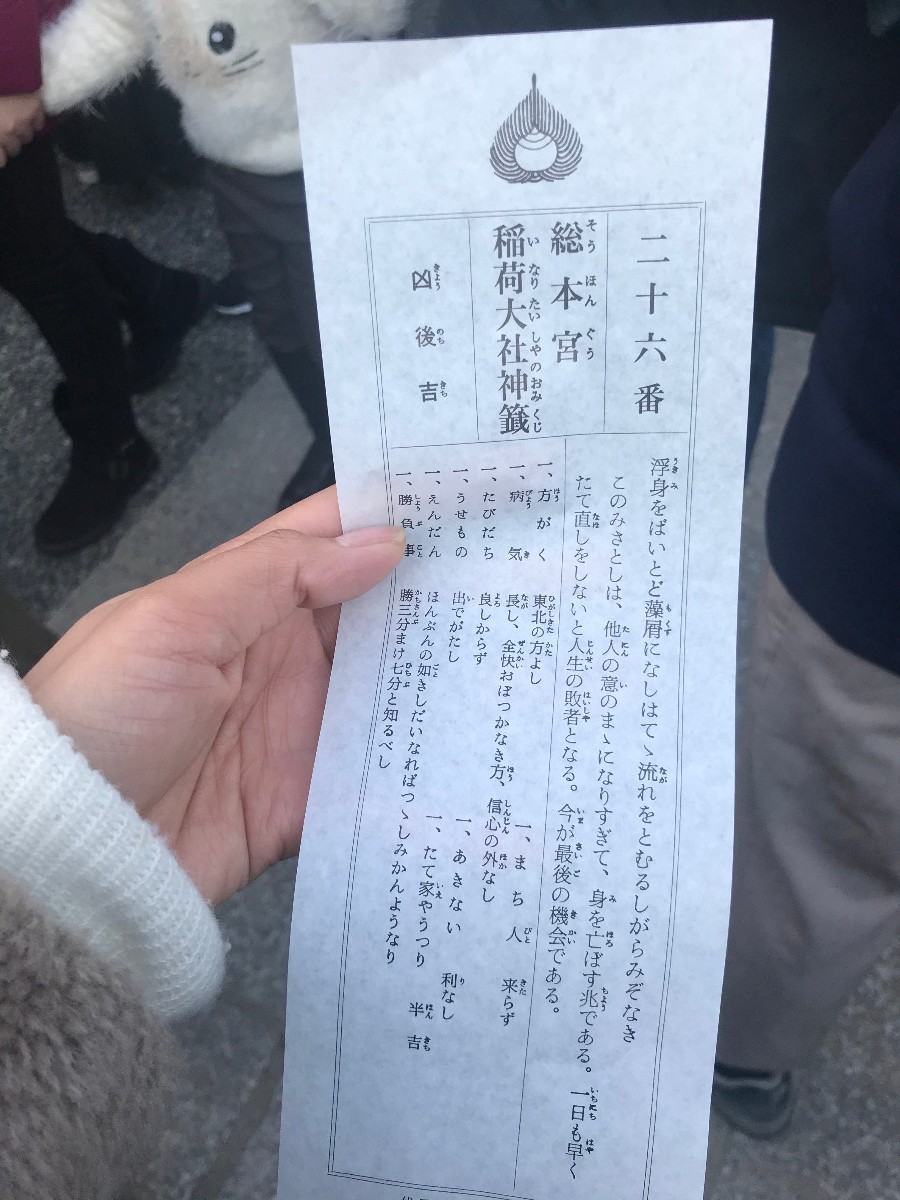 二十六番
総本宮
稲荷大社神籤
凶後吉
浮身をばいとど藻屑になしはてゝ流れをとむるしがらみぞなき
このみさとしは、他人の意のまゝになりすぎて、身を亡ぼす兆である。一日も早く
たて直しをしないと人生の敗者となる。今が最後の機会である。
一、方がく 東北の方よし
一、まち人 来らず
一、病気 長し、全快おぼつかなき方、信心の外なし
一、たびだち 良しからず
一、あきない 利なし
一、うせもの 出でがたし
一、たて家やうつり 半吉
一、えんだん ほんぶんの如きしだいなればつゝしみかんようなり
一、勝負事 勝三分まけ七分と知るべし